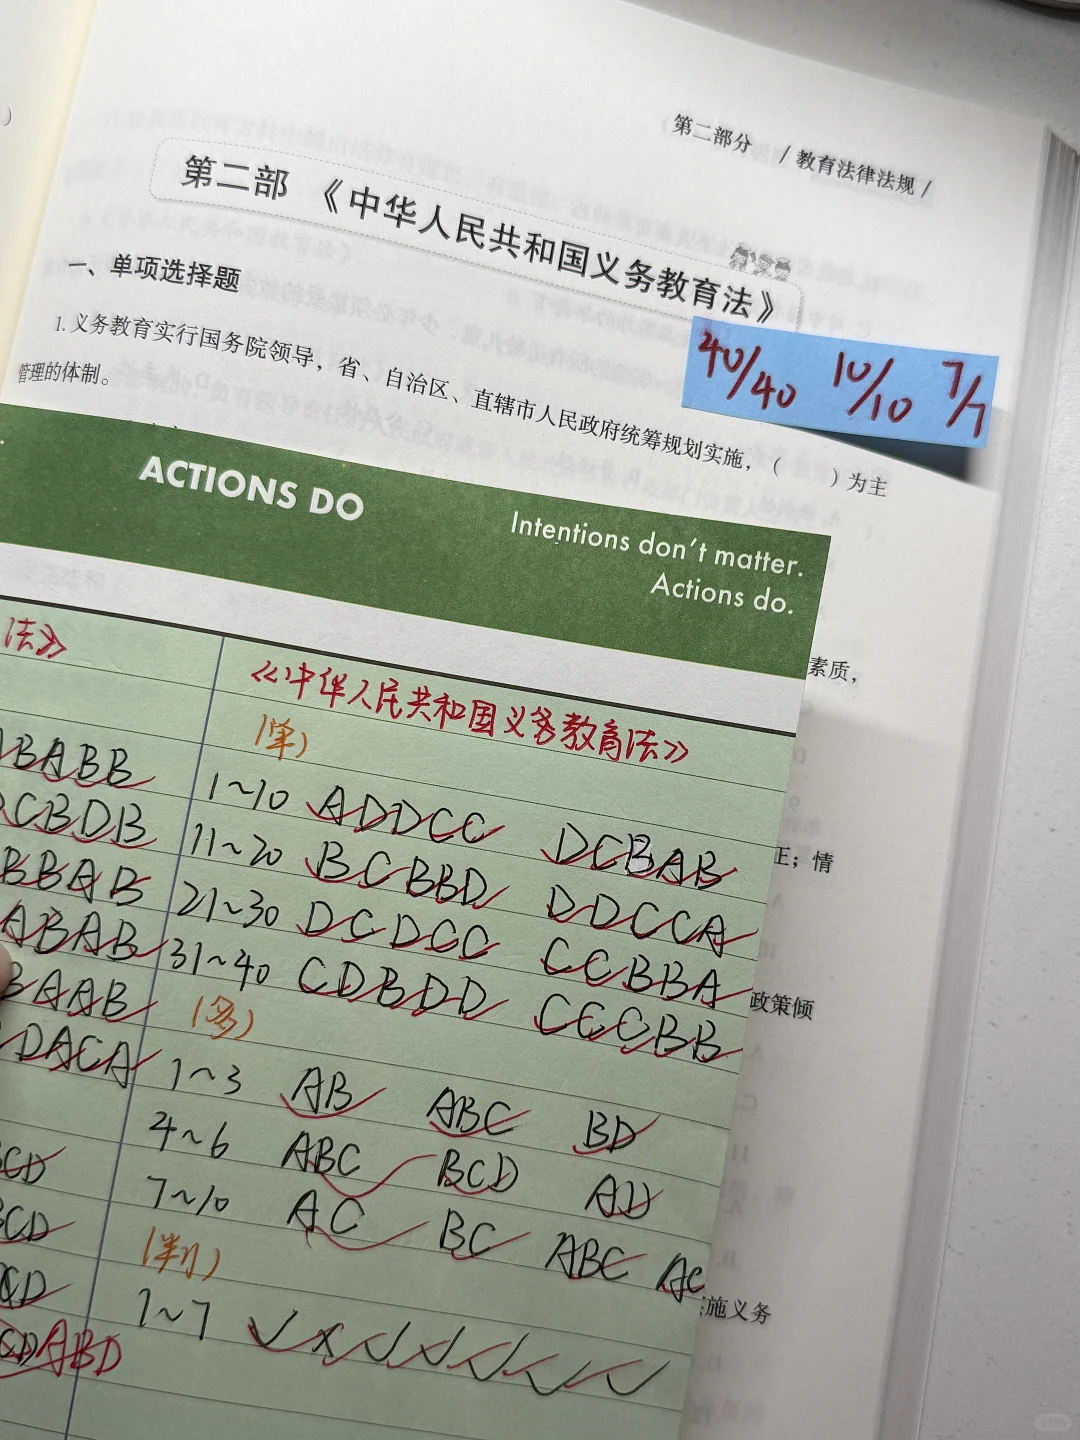 第二部分 / 教育法律法规 /
第二部 《中华人民共和国义务教育法》
一、单项选择题
40/40 10/10 7/7
1. 义务教育实行国务院领导，省、自治区、直辖市人民政府统筹规划实施，（ ）为主
管理的体制。
ACTIONS DO
Intentions don't matter.
Actions do.
素质，
法》
《中华人民共和国义务教育法》
(单)
BABB
1~10 ADDCC DCBAB
正；情
CBDB
11~20 BCBBD DDCCA
BBAB
21~30 DCDCC CCBBA
ABAB
31~40 CDBDD CCCBB
政策倾
BAAB
(多)
DACA
1~3 AB ABC BD
4~6 ABC BCD AD
CD
7~10 AC BC ABC AC
BCD
(判)
施义务
CD
1~7 ✓ × ✓ ✓ ✓ ✓ ✓
CD ABD